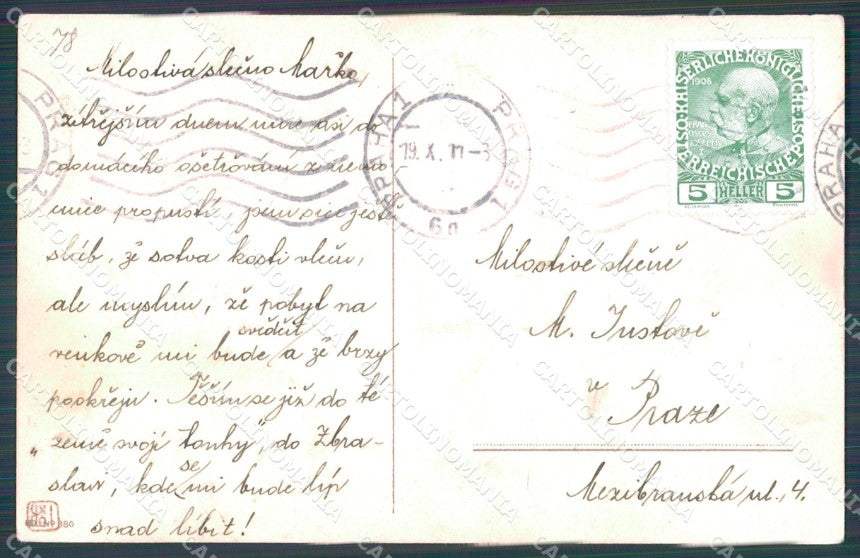 78
Milostivá slečno Mařko,
zítřejším dnem mne asi do
domácího ošetřování z nemo
cnice propustí, jsem sice ještě
sláb, že sotva kosti vleču,
ale myslím, že pobyt na
venkově mi bude svědčit a že brzy
pookřeju. Těším se již do té
„země svojí touhy", do Zbra-
slav, kde se mi bude líp
snad líbit!
PRAHA 1
PRAG 1
19. X. 11-3
6a
1908
KAISERLICHE KÖNIGLICHE
ÖSTERREICHISCHE POST
5 HELLER 5
Milostivé slečně
M. Justově
v
Praze
Mezibranská ul. 4.
PRAG 1
PRAHA
380
CARTOLINOMANIA